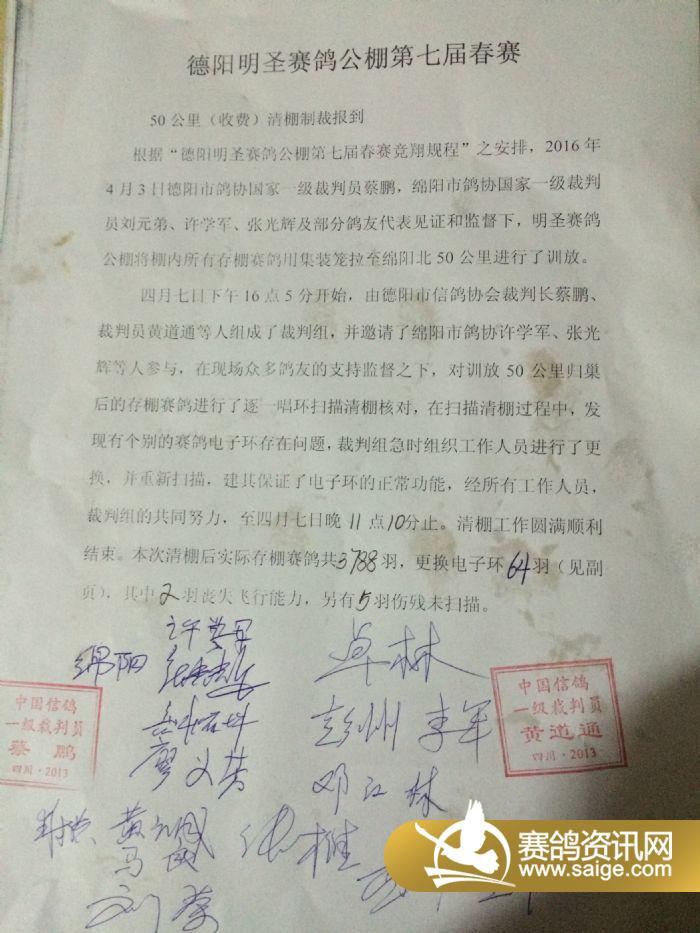 德阳明圣赛鸽公棚第七届春赛
50公里（收费）清棚制裁报到
根据“德阳明圣赛鸽公棚第七届春赛竞翔规程”之安排，2016年
4月3日德阳市鸽协国家一级裁判员蔡鹏，绵阳市鸽协国家一级裁判
员刘元弟、许学军、张光辉及部分鸽友代表见证和监督下，明圣赛鸽
公棚将棚内所有存棚赛鸽用集装笼拉至绵阳北50公里进行了训放。
四月七日下午16点5分开始，由德阳市信鸽协会裁判长蔡鹏、
裁判员黄道通等人组成了裁判组，并邀请了绵阳市鸽协许学军、张光
辉等人参与，在现场众多鸽友的支持监督之下，对训放50公里归巢
后的存棚赛鸽进行了逐一唱环扫描清棚核对，在扫描清棚过程中，发
现有个别的赛鸽电子环存在问题，裁判组急时组织工作人员进行了更
换，并重新扫描，建其保证了电子环的正常功能，经所有工作人员，
裁判组的共同努力，至四月七日晚11点10分止。清棚工作圆满顺利
结束。本次清棚后实际存棚赛鸽共3788羽，更换电子环64羽（见副
页），其中2羽丧失飞行能力，另有5羽伤残未扫描。
绵阳 许学军
卓林
彭州 李军
廖义英
邓江林
中国信鸽
一级裁判员
蔡鹏
四川·2013
中国信鸽
一级裁判员
黄道通
四川·2013
赛鸽资讯网
www.saige.com